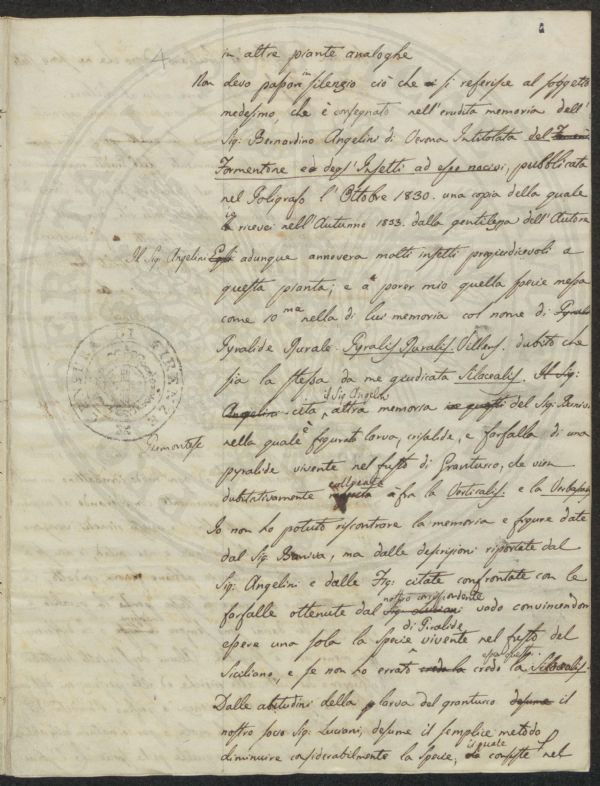 4
in altre piante analoghe
Non devo passar in silenzio ciò che si riferisce al soggetto
medesimo, che è consegnato nell'erudita memoria dell'
Sig: Bernardino Angelini di Verona Intitolata del
Formentone e degl'Insetti ad esso nocivi, pubblicata
nel Poligrafo l'Ottobre 1830. una copia della quale
ricevei nell'Autunno 1833. dalla gentilezza dell'Autore
Il Sig: Angelini Egli adunque annovera molti insetti pregiudicevoli a
questa pianta; e a parer mio quella specie messa
come 10ma nella di lui memoria col nome di Pyrale
Pyralide Rurale. Pyralis Ruralis. Villers. dubito che
sia la stessa da me giudicata Silacealis. Il Sig:
il Sig: Angelini
Angelini cita, altra memoria del Sig: Boniva
Piemontese
nella quale è figurato larva, crisalide, e farfalla di una
pyralide vivente nel fusto di Granturco, che vien
dubitativamente collocata fra la Verticalis. e la
Io non ho potuto riscontrare la memoria e figure date
dal Sig: Boniva, ma dalle descrizioni riportate dal
Sig: Angelini e dalle Fig: citate confrontate con le
nostro corrispondente
farfalle ottenute dal Sig: Luciani vado convincendomi
di Piralide
essere una sola la specie vivente nel fusto del
Siciliano, e se non ho errato credo la credo la Silacealis.
Dalle abitudini della larva del granturco desume il
nostro socio Sig: Luciani, desume il semplice metodo
il quale
diminuire considerabilmente la specie, consiste nel